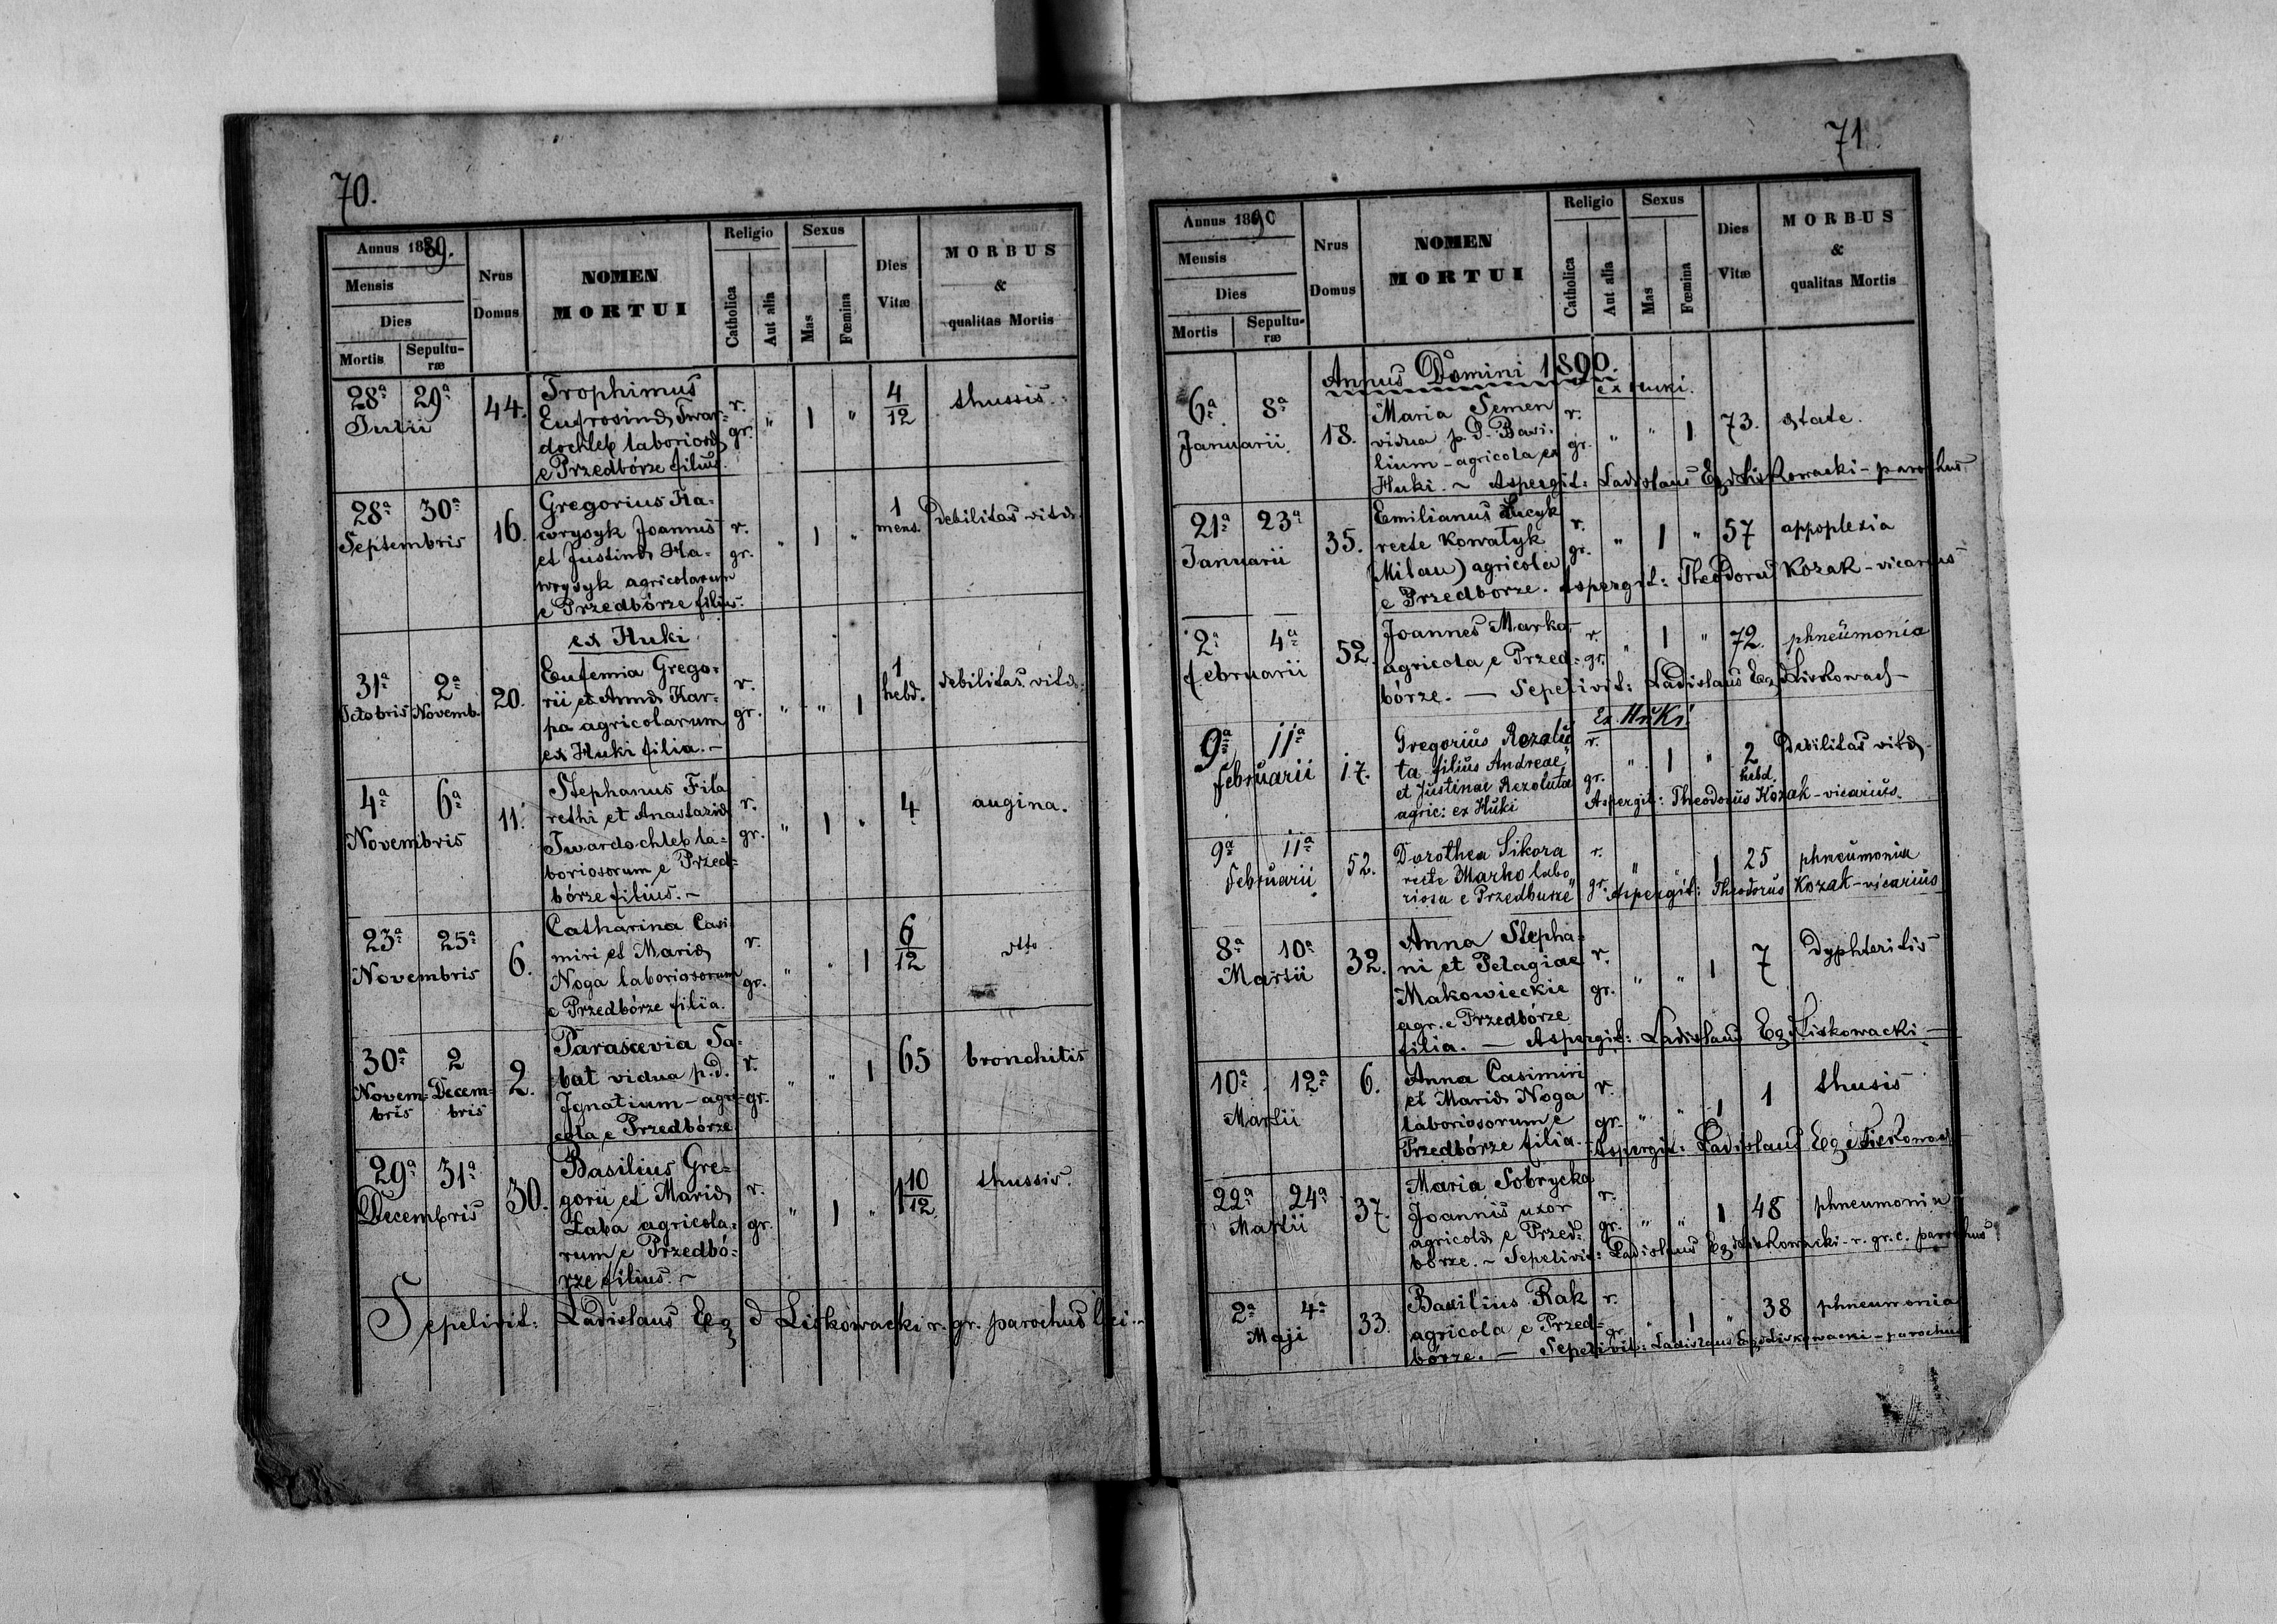 70.
Annus 1889.
Mensis
Dies
Mortis
Sepultu-
ræ
Nrus
Domus
NOMEN
MORTUI
Religio
Catholica
Aut alia
Sexus
Mas
Fœmina
Dies
Vitæ
MORBUS
&
qualitas Mortis
28ª 29ª
Julii
44.
Trophimus
Eufrosinæ Twar-
dochleb laboriosæ
e Przedbórze filius.
r.
gr.
" 1 "
4
12
thussis.
28ª 30ª
Septembris
16.
Gregorius Ha-
wrysyk Joannis
et Justinæ Ha-
wrysyk agricolarum
e Przedbórze filius.
r.
gr.
" 1 "
1
mens.
Debilitas vitæ
ex Huki
31ª 2ª
Octobris Novemb.
20.
Eufemia Grego-
rii et Annæ Kar-
pa agricolarum
ex Huki filia. -
r.
gr.
" " 1
1
hebd.
debilitas vitæ.
4ª 6ª
Novembris
11.
Stephanus Fila
rethi et Anastaziæ
Twardochleb la-
boriosorum e Przed-
bórze filius. -
r.
gr.
" 1 "
4
augina.
23ª 25ª
Novembris
6.
Catharina Casi
miri et Mariæ
Noga laboriosorum
e Przedbórze filia.
r.
gr.
" " 1
6
12
dtto
30ª 2
Novem- Decem-
bris bris
2.
Parascevia Sa-
bat vidua p.d.
Ignatium - agri-
cola e Przedbórze
r.
gr.
" " 1
65
bronchitis
29ª 31ª
Decembris
30.
Basilius Gre-
gorii et Mariæ
Łaba agricola-
rum e Przedbó-
rze filius. -
r.
gr.
" 1 "
1 10
12
thussis.
Sepelivit: Ladislaus Eq d Liskowacki r. gr. parochus loci. -
71
Annus 1890
Mensis
Dies
Mortis
Sepultu-
ræ
Nrus
Domus
NOMEN
MORTUI
Religio
Catholica
Aut alia
Sexus
Mas
Fœmina
Dies
Vitæ
MORBUS
&
qualitas Mortis
Annus Domini 1890.
ex Huki.
6ª 8ª
Januarii
18.
Maria Semen
vidua p. d. Basi-
lium - agricola ex
Huki. ~ Aspergit: Ladislaus Eq d Liskowacki - parochus
r.
gr.
" " 1
73.
ætate.
21ª 23ª
Januarii
35.
Emilianus Łucyk
recte Kowałyk
(Milan) agricola
e Przedborze. Aspergit: Theodorus Kozak - vicarius
r.
gr.
" 1 "
57
appoplexia
2ª 4ª
februarii
52.
Joannes Marko
agricola e Przed-
bórze. — Sepelivit: Ladislaus Eq d Liskowack-
r.
gr.
" 1 "
72.
phneümonia
Ex. Hüki
9ª 11ª
februarii
17.
Gregoriüs Rezolü
ta filiüs Andreae
et Jüstinae Rezolüta
agric: ex Hüki
r.
gr.
" 1 "
2
hebd.
Debilitas vitæ -
Aspergit: Theodorüs Kozak - vicariüs.
9ª 11ª
februarii
52.
Dorothea Sikora
recte Marko labo
riosa e Przedburze
r.
gr.
" 1
25
phneumonia
Aspergit: Theodorüs Kozak - vicariüs
8ª 10ª
Martii
32.
Anna Stepha-
ni et Pelagiae
Makowieckie
agr. e Przedbórze
filia. — Aspergit: Ladislaus Eq d Liskowacki —
r.
gr.
" " 1
7
Dyphteritis
10ª 12ª
Martii
6.
Anna Casimiri
et Mariæ Noga
laboriosorum e
Przedbórze filia. - Aspergit: Ladislaus Eq d Liskowack
r.
gr.
" " 1
1
thusis
22ª 24ª
Martii
37.
Maria Sobrycka
Joannis uxor
agricolæ e Przed-
bórze. ~ Sepelivit: Ladislaus Eq d Liskowacki - r. gr. c. parochus
r.
gr.
" " 1
48
phneumonia
2ª 4ª
Maji
33.
Basilius Rak
agricola e Przed-
bórze. — Sepelivit: Ladislaus Eq d Liskowacki - parochus
r.
gr.
" 1 "
38
phneumonia